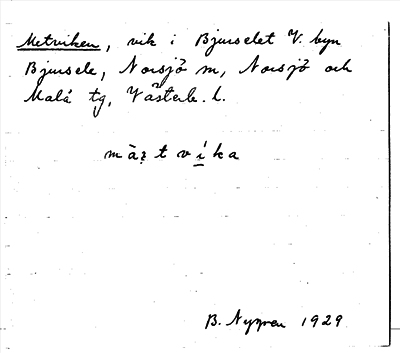 Metviken, vik i Bjurselet V. byn
Bjursele, Norsjö m, Norsjö och
Malå tg, Västerb. l.
m à ̨t v í k a
B. Nygren 1929